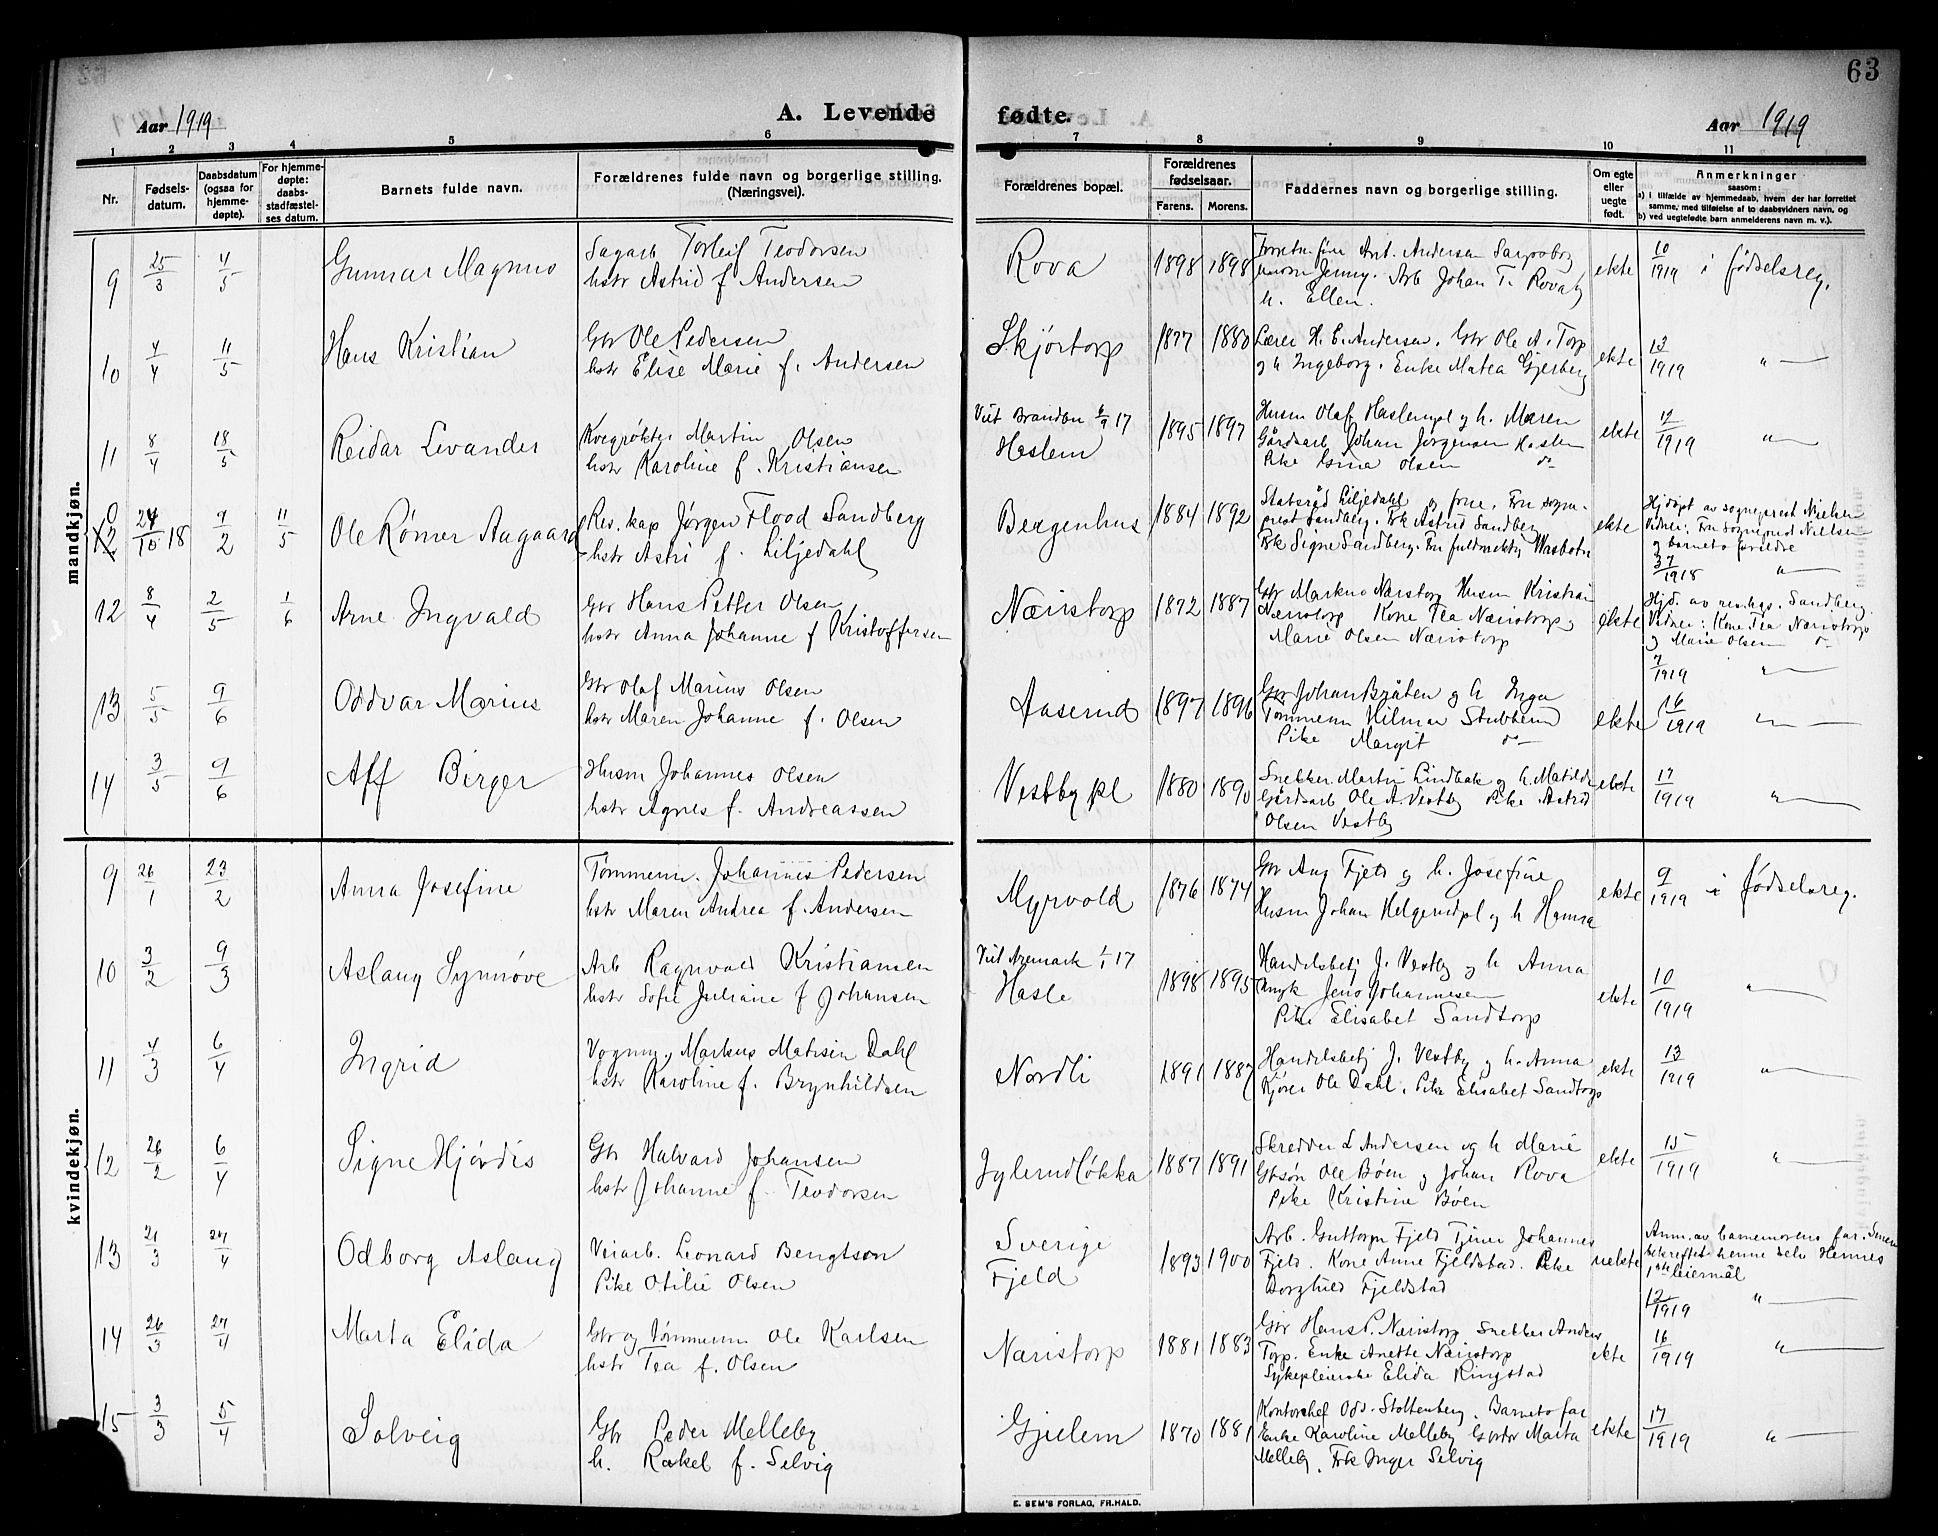 63
Aar 1919
A. Levende
fødte.
Aar 1919
1 2 3 4 5 6 7 8 9 10 11
Nr.
Fødsels-datum.
Daabsdatum (ogsaa for hjemme-døpte).
For hjemme-døpte: daabs-stadfæstel-ses datum.
Barnets fulde navn.
Forældrenes fulde navn og borgerlige stilling. (Næringsvei).
Forældrenes bopæl.
Forældrenes fødselsaar.
Farens. Morens.
Faddernes navn og borgerlige stilling.
Om egte eller uegte født.
Anmerkninger
saasom:
a) i tilfælde av hjemmedaab, hvem der har forrettet samme, med tilføielse af to daabsvidners navn, og
b) ved uegtefødte barn anmelderens navn m. v.).
mandkjøn.
9 25/3 4/5 Gunnar Magnus
Sagarb Torleif Teodorsen
hstr Astrid f Andersen
Rova 1898 1898
Forretn.før Ant. Andersen Sarpsborg
Jenny. Arb Johan T. Rova og
h. Ellen.
ekte 10/1919 i fødselsreg.
10 4/4 11/5 Hans Kristian
Gbr Ole Pedersen
hstr Elise Marie f. Andersen
Skjørtorp 1877 1880
Lærer H. E. Andersen. Gbr Ole A. Torp
og h Ingeborg. Enke Matea Gjerberg
ekte 13/1919 " —
11 8/4 18/5 Reidar Levander
Kvegrøkter Martin Olsen
hstr Karoline f. Kristiansen
Vist Brandbu 6/9 17
Haslem 1895 1897
Husm Olaf Haslempl og h. Maren
Gårdsarb Johan Jørgensen Haslem
Pike Gina Olsen do
ekte 12/1919 " —
0 12 24/10 18 9/2 11/5 Ole Rømer Aagaard
Res. kap Jørgen Flood Sandberg
hstr Astri f. Liljedahl
Bergenhus 1884 1892
Statsråd Liljedahl og frue. Fru sogne-
prest Sandberg. Frk Astrid Sandberg
Frk Signe Sandberg. Fru fuldmektig Wasbotn
ekte Hjdøpt av sogneprest Nielsen
Vidner: Fru sogneprest Nielsen
og barnets foreldre
37/1918 " —
12 8/4 2/5 1/6 Arne Ingvald
Gbr Hans Petter Olsen
hstr Anna Johanne f Kristoffersen
Næristorp 1872 1887
Gbr Markus Næristorp Husm Kristian
Næristorp Kone Tea Næristorp og
Marie Olsen Næristorp
ekte Hjd. av res.kap. Sandberg.
Vidner: Kone Tea Næristorp
og Marie Olsen do
7/1919 " —
13 5/5 9/6 Oddvar Marius
Gbr Olaf Marius Olsen
hstr Maren Johanne f. Olsen
Aaserud 1897 1896
Gbr Johan Bråten og h Inga
Tømmerm Hilmar Stubberud
Pike Margit do
ekte 16/1919 " —
14 3/5 9/6 Aff Birger
Husm Johannes Olsen
hstr Agnes f. Andreassen
Vestby pl 1880 1890
Snekker Martin Lindbæk og h. Matilde
Gårdsarb Ole A. Vestby Pike Astrid
Olsen Vestby
ekte 17/1919 " —
kvindekjøn.
9 26/1 23/2 Anna Josefine
Tømmerm. Johannes Pedersen
hstr Maren Andrea f. Andersen
Myrvold 1876 1874
Gbr Aug Fjeld og h. Josefine
Husm Johan Helgerudpl og h Hanna
ekte 9/1919 i fødselsreg.
10 3/2 9/3 Aslaug Synnøve
Arb Ragnvald Kristiansen
hstr Sofie Juliane f Johansen
Vist Aremark 1/1 17
Hasle 1898 1895
Handelsbetj J. Vestby og h Anna
Ungk Jens Johannesen
Pike Elisabet Sandtorp
ekte 10/1919 " —
11 4/3 6/4 Ingrid
Vognm. Markus Matisen Dahl
hstr Karoline f. Brynhildsen
Nordli 1891 1887
Handelsbetj J. Vestby og h. Anna
Kjører Ole Dahl. Pike Elisabet Sandtorp
ekte 13/1919 " —
12 26/2 6/4 Signe Hjørdis
Gbr Halvard Johansen
hstr Johanne f. Teodorsen
Jylerudløkka 1887 1891
Skredder L Andersen og h Marie
Gbsøn Ole Bøen og Johan Rova
Pike Kristine Bøen
ekte 15/1919 " —
13 21/3 27/4 Odborg Aslaug
Veiarb. Leonard Bengtson
Pike Otilie Olsen
Sverige
Fjeld 1893 1900
Arb. Guttorm Fjeld Tjener Johannes
Fjeld. Kone Anne Fjeldstad. Pike
Borghild Fjeldstad
uekte Anm. av barnemorens far. Senere
bekreftet henne selv Hennes
1ste leiermål
12/1919 " —
14 26/3 27/4 Marta Elida
Gbr og Tømmerm Ole Karlsen
hstr Tea f. Olsen
Næristorp 1881 1883
Gbr Hans P. Næristorp Snekker Anders
Torp. Enke Anette Næristorp
Sykepleierske Elida Ringstad
ekte 16/1919 " —
15 3/3 5/4 Solveig
Gbr Peder Melleby
h. Rakel f. Selvig
Gjølem 1870 1881
Kontorchef Odd. Stoltenberg. Barnets far
Enke Karoline Melleby Gbrdtr Marta
Melleby. Frk Inger Selvig
ekte 17/1919 " —
E. SEM'S FORLAG, FR.HALD.